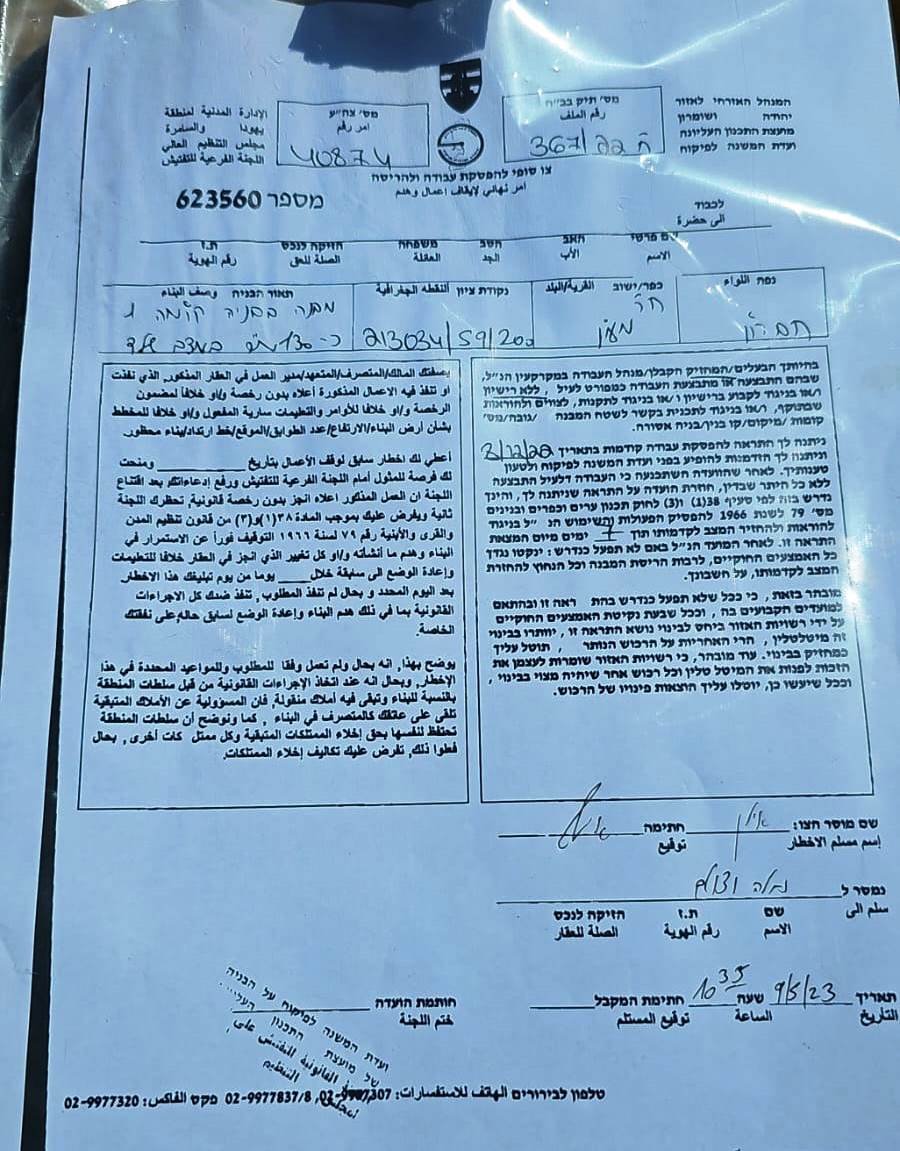 המנהל האזרחי לאזור
יהודה ושומרון
מועצת התכנון העליונה
ועדת המשנה לפיקוח
מס' תיק בב"ח
رقم الملف
ח 22/367
מס' צה"ע
امر رقم
40874
الإدارة المدنية لمنطقة
يهودا والسامرة
مجلس التنظيم العالي
اللجنة الفرعية للتفتيش
צו סופי להפסקת עבודה ולהריסה
امر نهائي لايقاف اعمال وهدم
מספר 623560
לכבוד
الى حضرة
שם פרטי האב הסב משפחה הזיקה לנכס ת.ז
الاسم الأب الجد العائلة الصلة للحق رقم الهوية
נפת اللواء
חברון
כפר/ישוב القرية/البلد
חר'
מעין
נקודת ציון النقطة الجغرافية
213034/591200
תאור הבניה وصف البناء
מבנה בבניה קומה 1
כ-130 מ"ר במצב שלד
בהיותך הבעלים/המחזיק הקבלן/מנהל העבודה במקרקעין הנ"ל,
שבהם התבצעה או מתבצעת העבודה כמפורט לעיל, ללא רישיון
ו/או בניגוד לקבוע ברישיון ו/או בניגוד לתקנות, לצווים ולהוראות
שבתוקף, ו/או בניגוד לתכנית בקשר לשטח המבנה /גובה/מס'
קומות /מיקום/קו בנין/בניה אסורה.
ניתנה לך התראה להפסקת עבודה קודמת בתאריך 8/12/22
וניתנה לך הזדמנות להופיע בפני ועדת המשנה לפיקוח ולטעון
טענותיך. לאחר שהוועדה השתכנעה כי העבודה דלעיל התבצעה
ללא כל היתר שבדין, חוזרת הועדה על התראה שניתנה לך, והינך
נדרש בזה לפי סעיף 38(1) ו(3) לחוק תכנון ערים וכפרים ובנינים
מס' 79 לשנת 1966 להפסיק הפעולות והשימוש הנ"ל בניגוד
להוראות ולהחזיר המצב לקדמותו תוך 7 ימים מיום המצאת
התראה זו. לאחר המועד הנ"ל באם לא תפעל כנדרש: ינקטו נגדך
כל האמצעים החוקיים, לרבות הריסת המבנה וכל הנחוץ להחזרת
המצב לקדמותו, על חשבונך.
מובהר בזאת, כי ככל שלא תפעל כנדרש בהתראה זו ובהתאם
למועדים הקבועים בה, וככל שבעת נקיטת האמצעים החוקיים
על ידי רשויות האזור ביחס לבינוי נושא התראה זו, יוותרו בבינוי
זה מיטלטלין, הרי האחריות על הרכוש הנותר, תוטל עליך
כמחזיק בבינוי. עוד מובהר, כי רשויות האזור שומרות לעצמן את
הזכות לפנות את המיטלטלין וכל רכוש אחר שיהיה מצוי בבינוי,
וככל שיעשו כן, יוטלו עליך הוצאות פינויו של הרכוש.
بصفتك المالك/المتصرف/المتعهد/مدير العمل في العقار المذكور, الذي نفذت
او تنفذ فيه الاعمال المذكورة أعلاه بدون رخصة و/او خلافا لمضمون
الرخصة و/او خلافا للأوامر والتعليمات سارية المفعول و/او خلافا للمخطط
بشأن أرض البناء/الارتفاع/عدد الطوابق/الموقع/خط ارتداد/بناء محظور.
أعطي لك اخطار سابق لوقف الأعمال بتاريخ ______ ومنحت
لك فرصة للمثول أمام اللجنة الفرعية للتفتيش ورفع إدعاءاتكم بعد اقتناع
اللجنة ان العمل المذكور اعلاه انجز بدون رخصة قانونية, تحظرك اللجنة
ثانية ويفرض عليك بموجب المادة ٣٨(١)و(٣) من قانون تنظيم المدن
والقرى والأبنية رقم ٧٩ لسنة ١٩٦٦ التوقيف فوراً عن الاستمرار في
البناء وهدم ما أنشأته و/او كل تغيير الذي انجز في العقار خلافا للتعليمات
وإعادة الوضع الى سابقة خلال ____ يوما من يوم تبليغك هذا الاخطار
بعد اليوم المحدد و بحال لم تنفذ المطلوب, تنفذ ضدك كل الاجراءات
القانونية بما في ذلك هدم البناء وإعادة الوضع لسابق حاله على نفقتك
الخاصة.
يوضح بهذا, انه بحال ولم تعمل وفقا للمطلوب وللمواعيد المحددة في هذا
الإخطار, وبحال انه عند اتخاذ الإجراءات القانونية من قبل سلطات المنطقة
بالنسبة للبناء وتبقى فيه أملاك منقولة, فان المسؤولية عن الأملاك المتبقية
تلقى على عاتقك كالمتصرف في البناء, كما ونوضح أن سلطات المنطقة
تحتفظ لنفسها بحق إخلاء الممتلكات المتبقية وكل ممتلكات أخرى, بحال
فعلوا ذلك, تفرض عليك تكاليف إخلاء الممتلكات.
שם מוסר הצו: אילן חתימה
إسم مسلم الاخطار توقيع
נמסר ל
سلم الى
שם ת.ז הזיקה לנכס
الاسم رقم الهوية الصلة للعقار
תאריך 9/5/23 שעה 10:35 חתימת המקבל
التاريخ الساعة توقيع المستلم
חותמת הועדה
ختم اللجنة
ועדת המשנה לפיקוח על הבניה
של מועצת התכנון
טלפון לבירורים الهاتف للاستفسارات: 02-9977307, 02-9977837/8 פקס الفاكس: 02-9977320